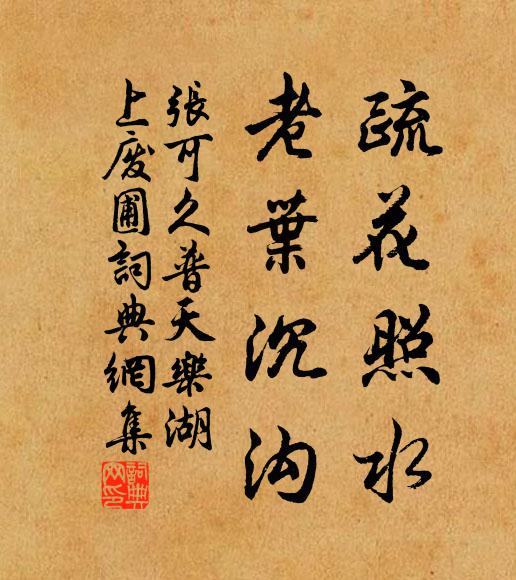 疏花照水
老葉沉沟
張可久普天樂湖
上廢圃詞典網集
詞典网印